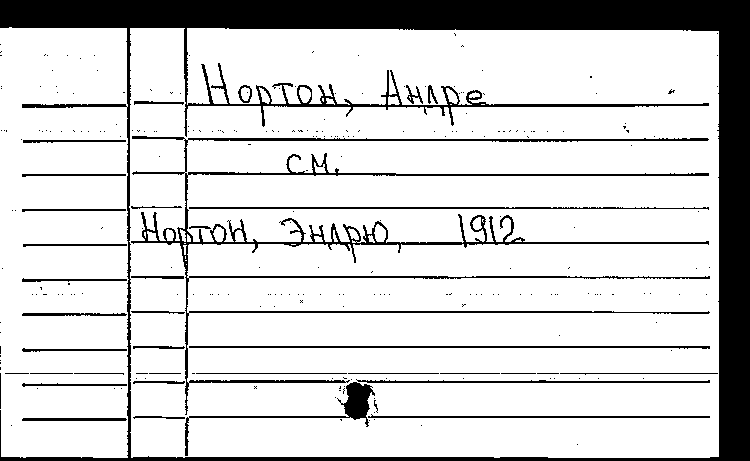 Нортон, Андре
см.
Нортон, Эндрю, 1912